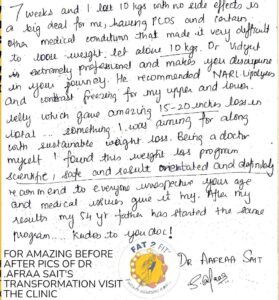 7 weeks and I lost 10 kgs with no side effects is
a big deal for me, having PCOS and certain
other medical conditions that made it very difficult
to loose weight, let alone 10 kgs. Dr Vidyut
is extremely professional and makes you
in your journey. He recommended NARL lipolysis
and contrast freezing for my upper and lower
belly which gave amazing 15-20 inches loss in
total ... something I was aiming for along
with sustainable weight loss. Being a doctor
myself I found this weight loss program
scientific, safe and result orientated and definitely
recommend to everyone irrespective your age
and medical issues give it try. After my
results my 54 yr father has started the same
program.... Kudos to you doc!
FAT 2 FIT
DR AAFRAA SAIT
FOR AMAZING BEFORE
AFTER PICS OF DR
AFRAA SAIT'S
TRANSFORMATION VISIT
THE CLINIC